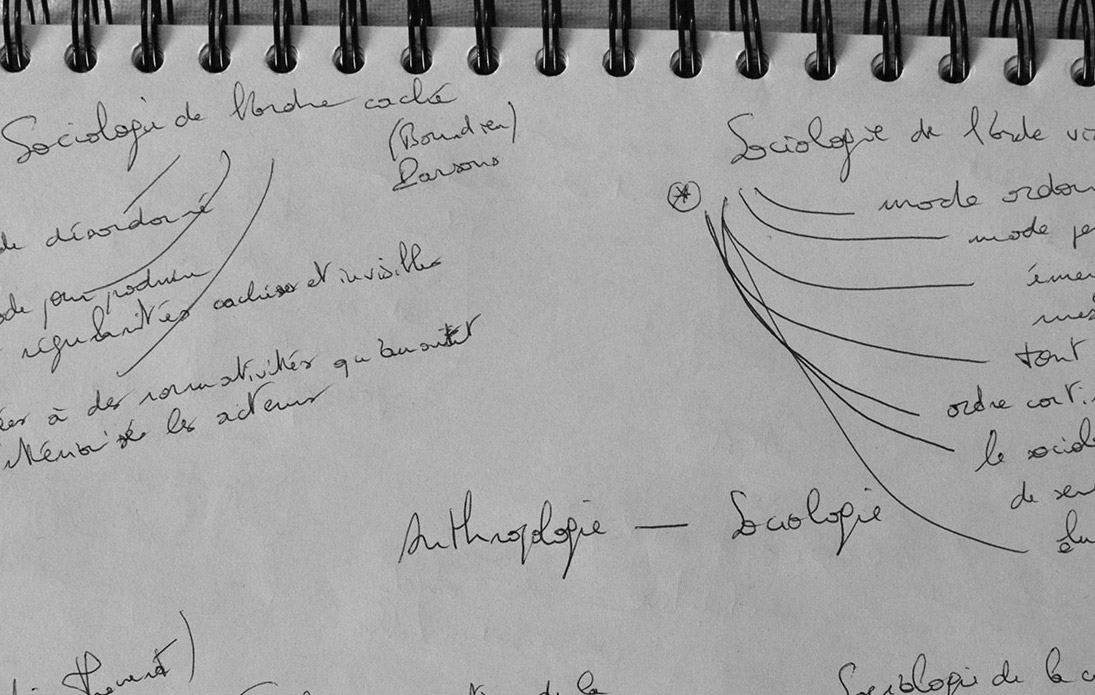 Sociologie de l'Ordre caché
(Bourdieu)
Parsons
de désordonné
ode pour produire
régularités cachées et invisibles
ées à des normativités qu'auraient
intériorisées les acteurs
Sociologie de l'Ordre vis
mode ordon
mode pe
émer
tout
ordre cont
le sociol
de sen
Anthropologie — Sociologie
Thévenot)
de la
Sociologie de la c